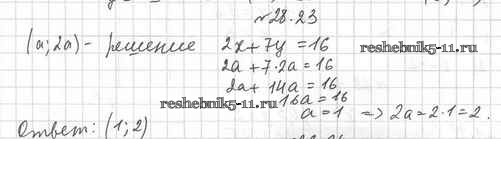 №28.23
(a; 2a) - решение 2x + 7y = 16
reshebnik5-11.ru
2a + 7·2a = 16
2a + 14a = 16
reshebnik5-11.ru
16a = 16
a = 1 => 2a = 2·1 = 2.
Ответ: (1; 2)